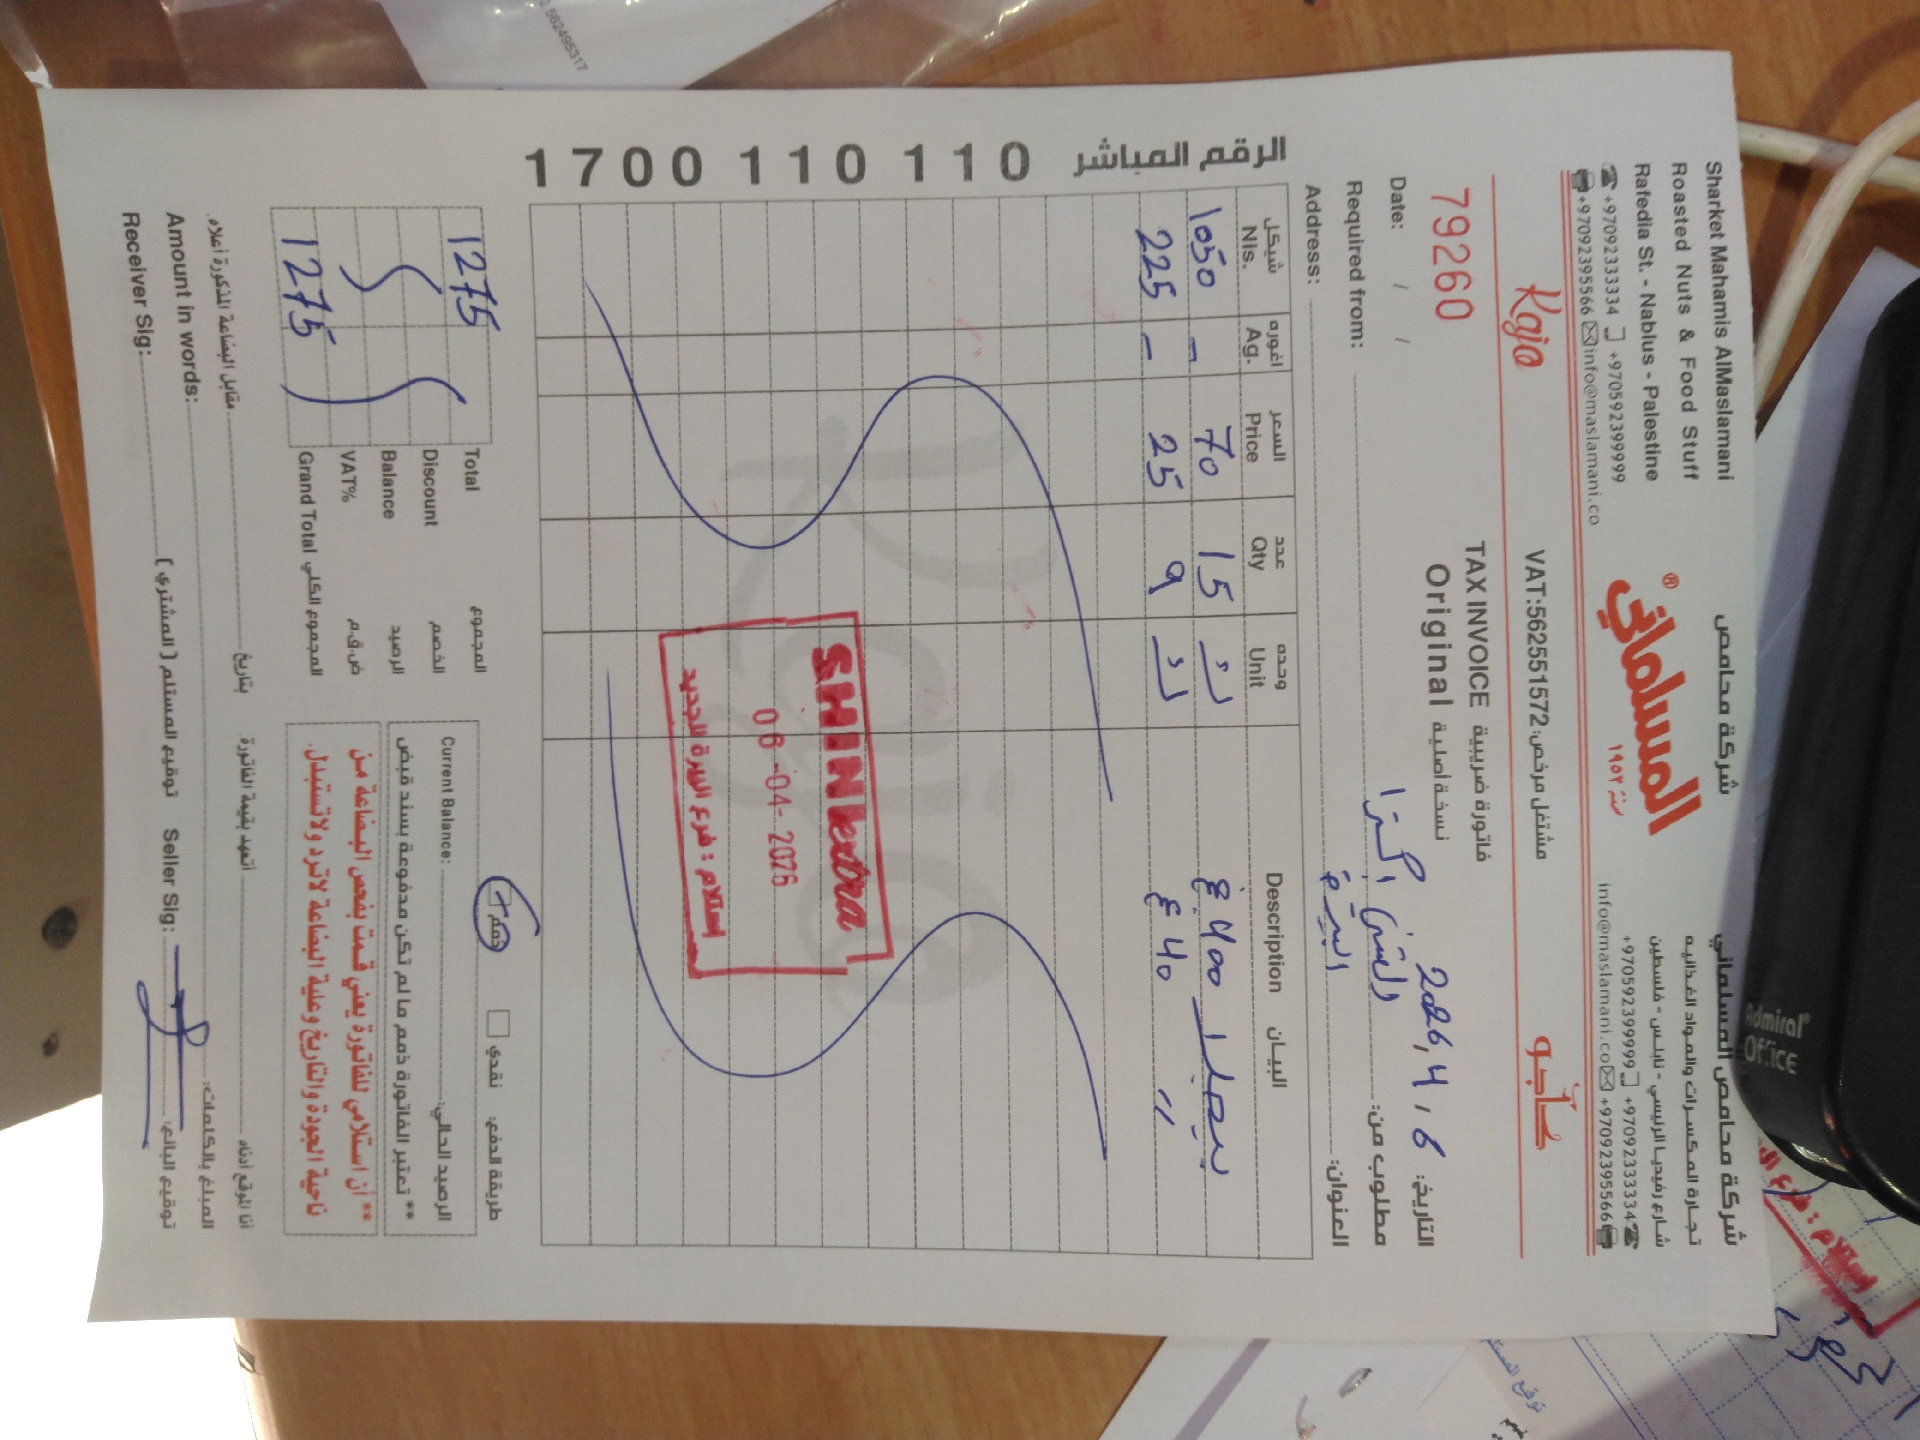 Sharket Mahamis AlMaslamani
Roasted Nuts & Food Stuff
Rafedia St. - Nablus - Palestine
+97092333334 +970592399999
+97092395566 info@maslamani.co
شركة محامص
المسلماني
®
سنة ١٩٥٢
شركة محامص المسلماني
تجارة المكسرات والمواد الغذائيه
شارع رفيديا الرئيسي - نابلس - فلسطين
+970592399999 +97092333334
info@maslamani.co +97092395566
Kaja
VAT:562551572 مشتغل مرخص:
كاجو
79260
TAX INVOICE فاتورة ضريبية
Original نسخة أصلية
Date: / /
التاريخ: 2026,4,6
Required from:
مطلوب من: الشني اكسترا
Address:
العنوان: البيرة
الرقم المباشر 1700 110 110
شيكل اغوره السعر عدد وحده
Nis. Ag. Price Qty Unit Description البيان
1050 - 70 15 400 غ
225 - 25 9 40 غ "
SHINI extra
06-04-2026
إستلام: فرع البيرة الجديد
1275 Total المجموع
Discount الخصم
Balance الرصيد
VAT% ض.ق.م
1275 Grand Total المجموع الكلي
طريقة الدفع: نقدي ذمم
Current Balance: الرصيد الحالي:
** تعتبر الفاتورة ذمم ما لم تكن مدفوعة بسند قبض
** أن استلامي للفاتورة يعني قمت بفحص البضاعة من
ناحية الجودة والتاريخ وعلية البضاعة لاترد ولاتستبدل.
أنا الموقع أدناه أتعهد بقيمة الفاتورة. بتاريخ مقابل البضاعة المذكورة أعلاه.
Amount in words: المبلغ بالكلمات:
Receiver Sig: توقيع المستلم ( المشتري ) Seller Sig: توقيع البائع:
Admiral®
Office
2 562495317
إستلام: فرع
توقيع المستلم